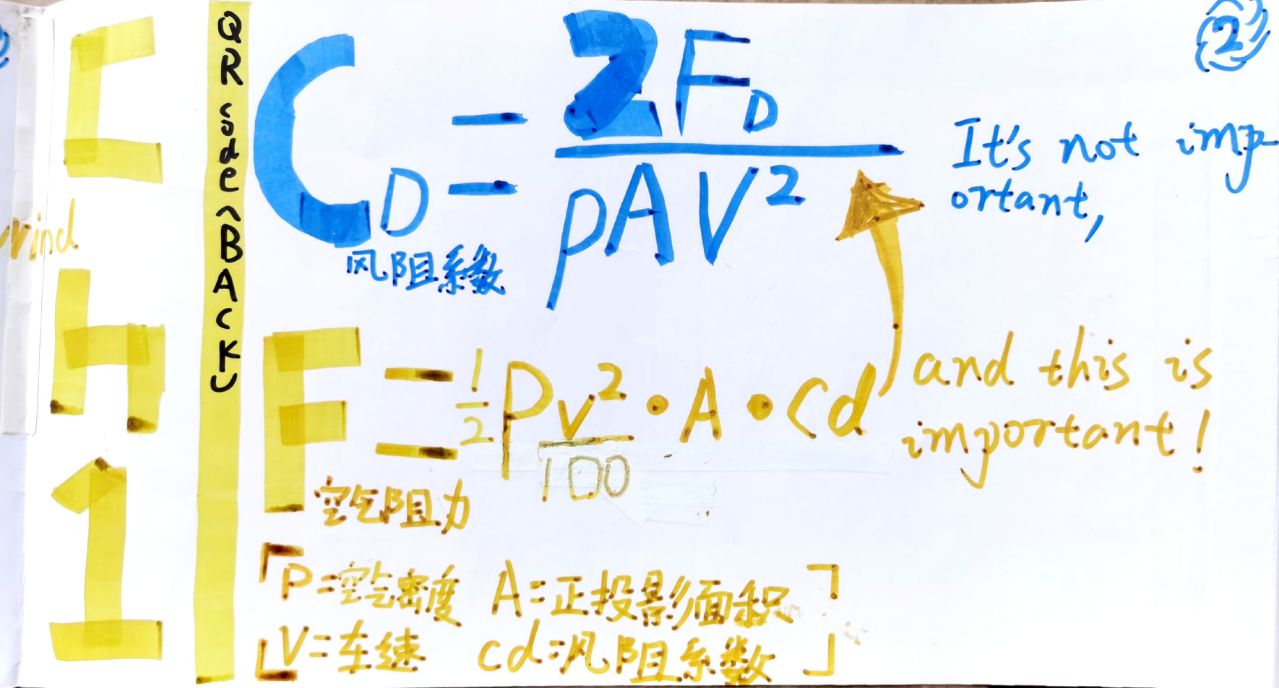 Ch1
wind
QR Side (BACK)
②
C_D = 2F_D / ρAV²
风阻系数
It's not imp
ortant,
F = 1/2 ρ v²/100 · A · cd
空气阻力
and this is
important!
「P=空气密度 A=正投影面积
V=车速 cd=风阻系数」